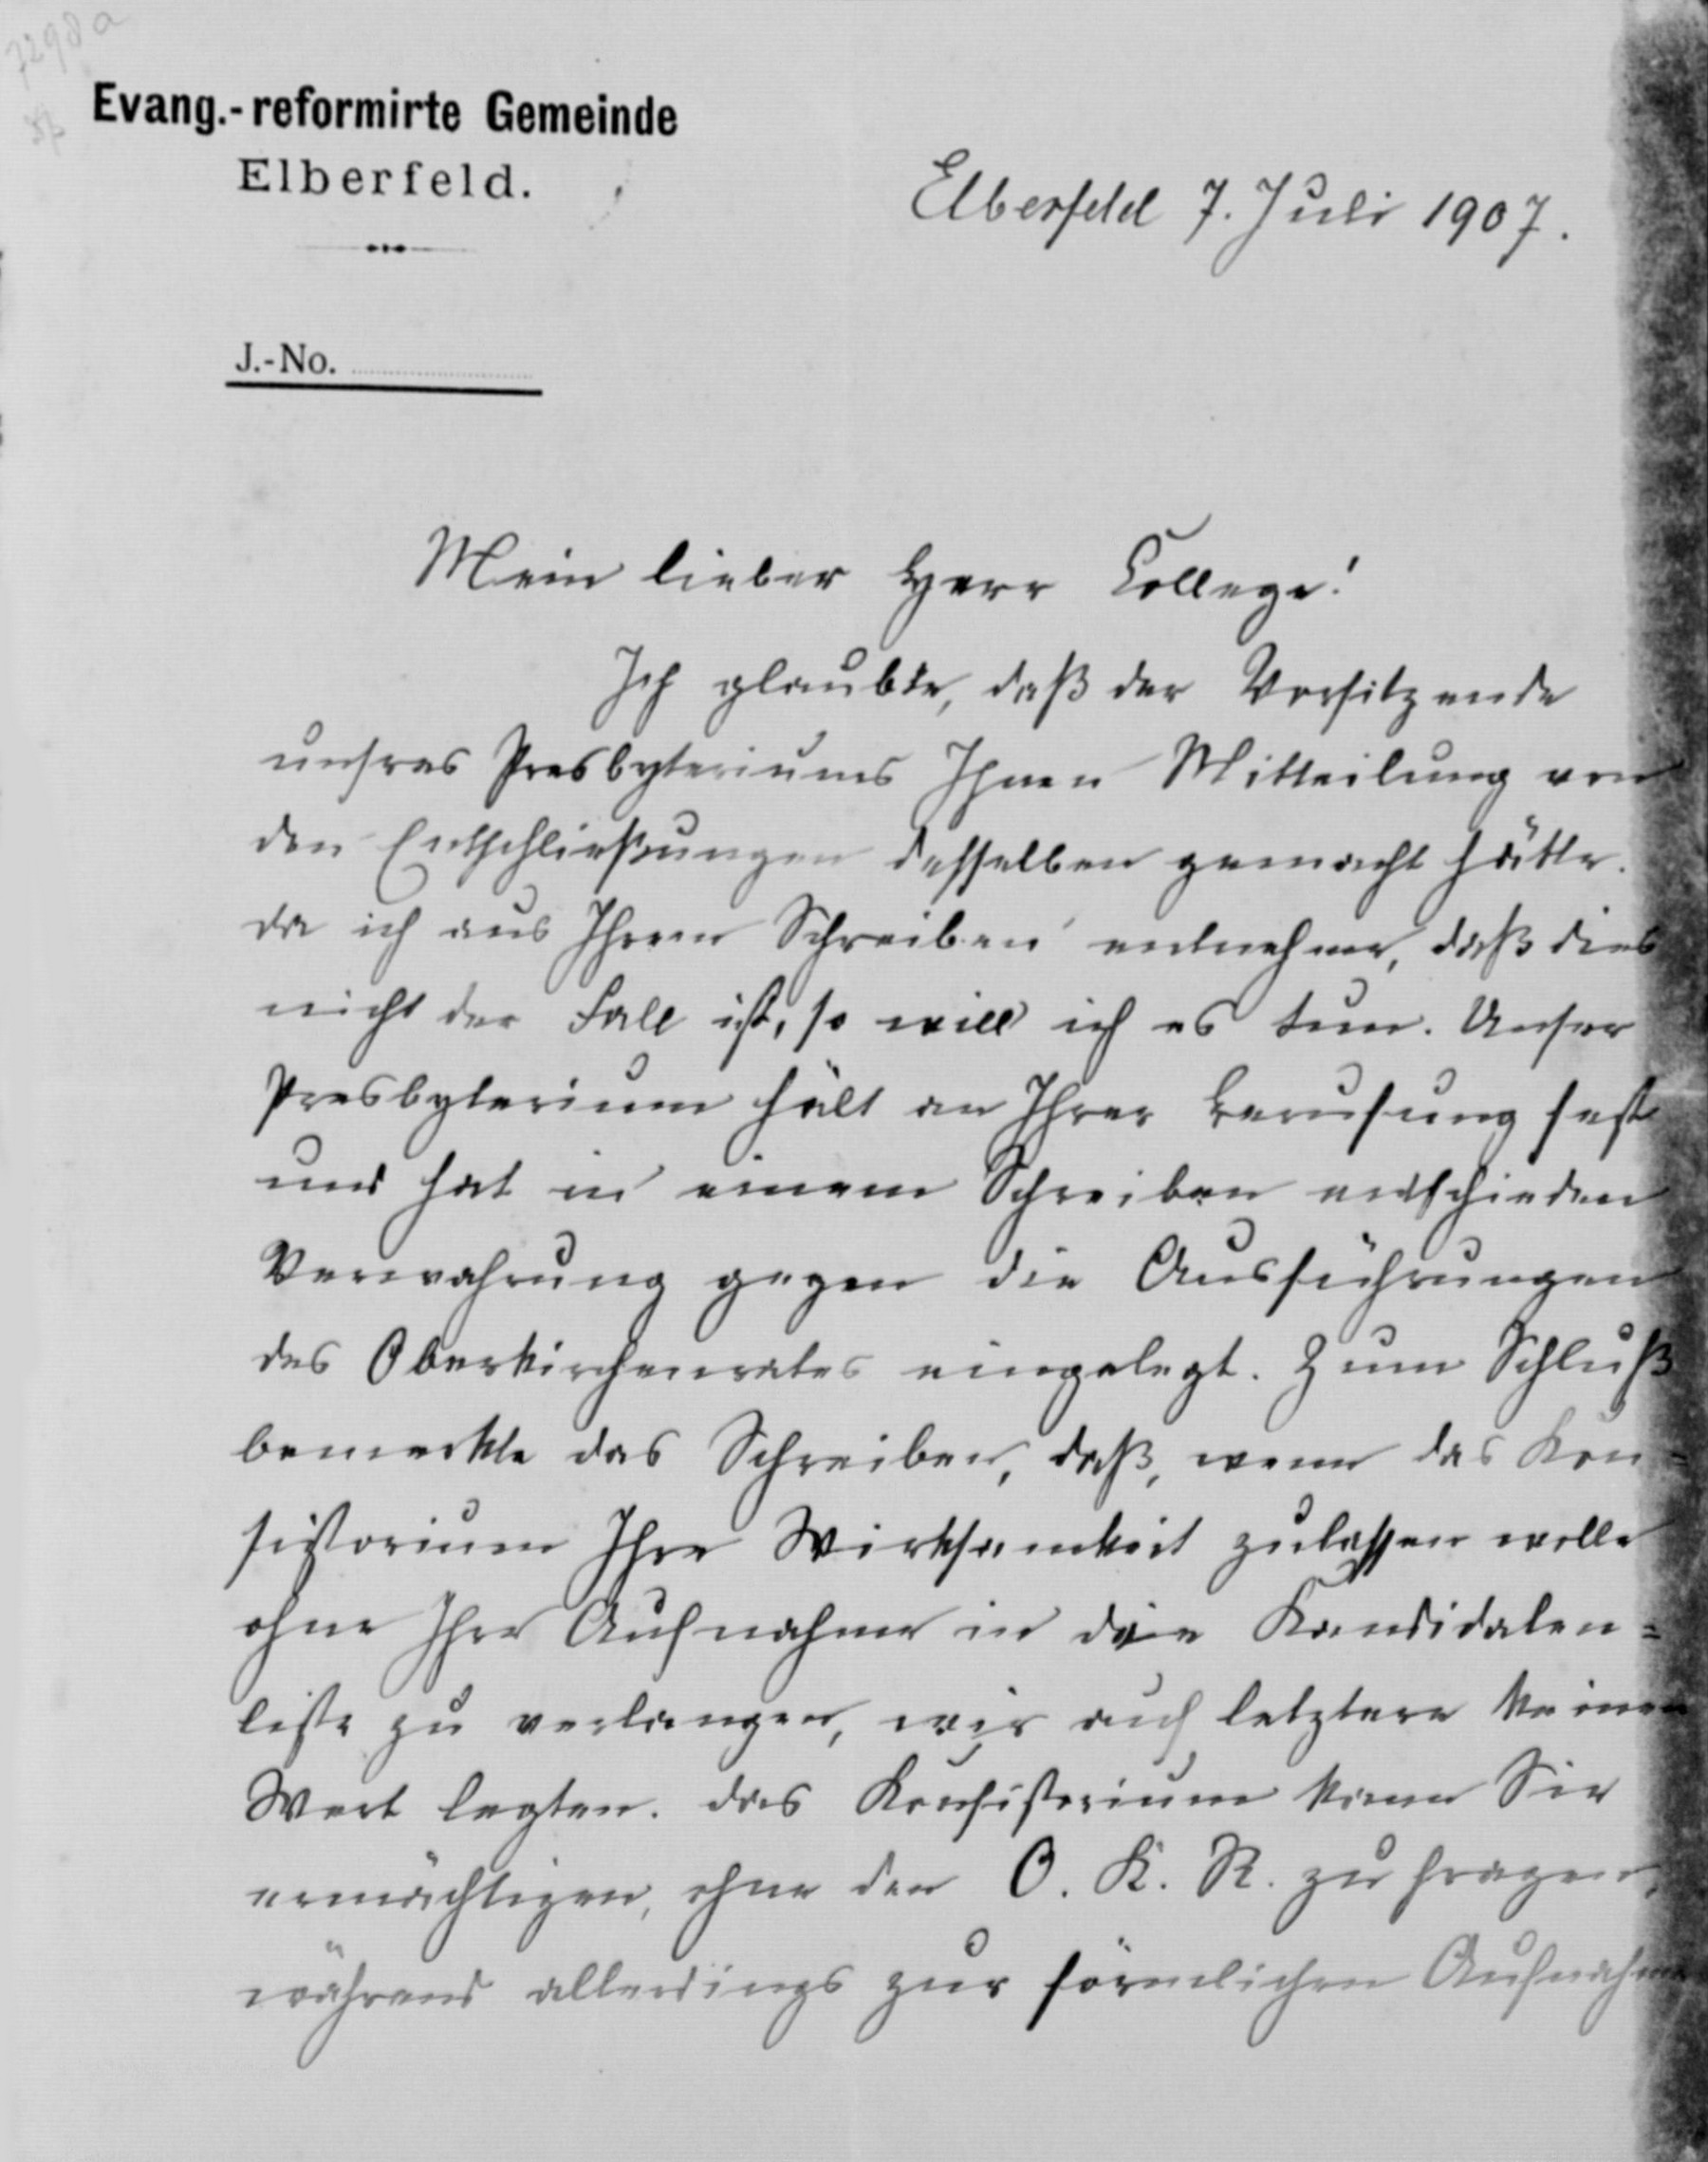 7298a
Evang.-reformirte Gemeinde
Elberfeld.
Elberfeld 7. Juli 1907.
J.-No.
Mein lieber Herr College!
Ich glaubte, daß der Vorsitzende
unsres Presbyteriums Ihnen Mitteilung von
den Entschließungen desselben gemacht hätte.
Da ich aus Ihrem Schreiben entnehme, daß dies
nicht der Fall ist, so will ich es tun. Unser
Presbyterium hält an Ihrer Berufung fest
und hat in einem Schreiben entschieden
Verwahrung gegen die Ausführungen
des Oberkirchenrates eingelegt. Zum Schluß
bemerkte das Schreiben, daß, wenn das Kon=
sistorium Ihre Wirksamkeit zulassen wolle
ohne Ihre Aufnahme in die Kandidaten=
liste zu verlangen, wir auf letztere keinen
Wert legten. Das Konsistorium kann Sie
ermächtigen, ohne den O. K. R. zu fragen,
während allerdings zur förmlichen Aufnahme